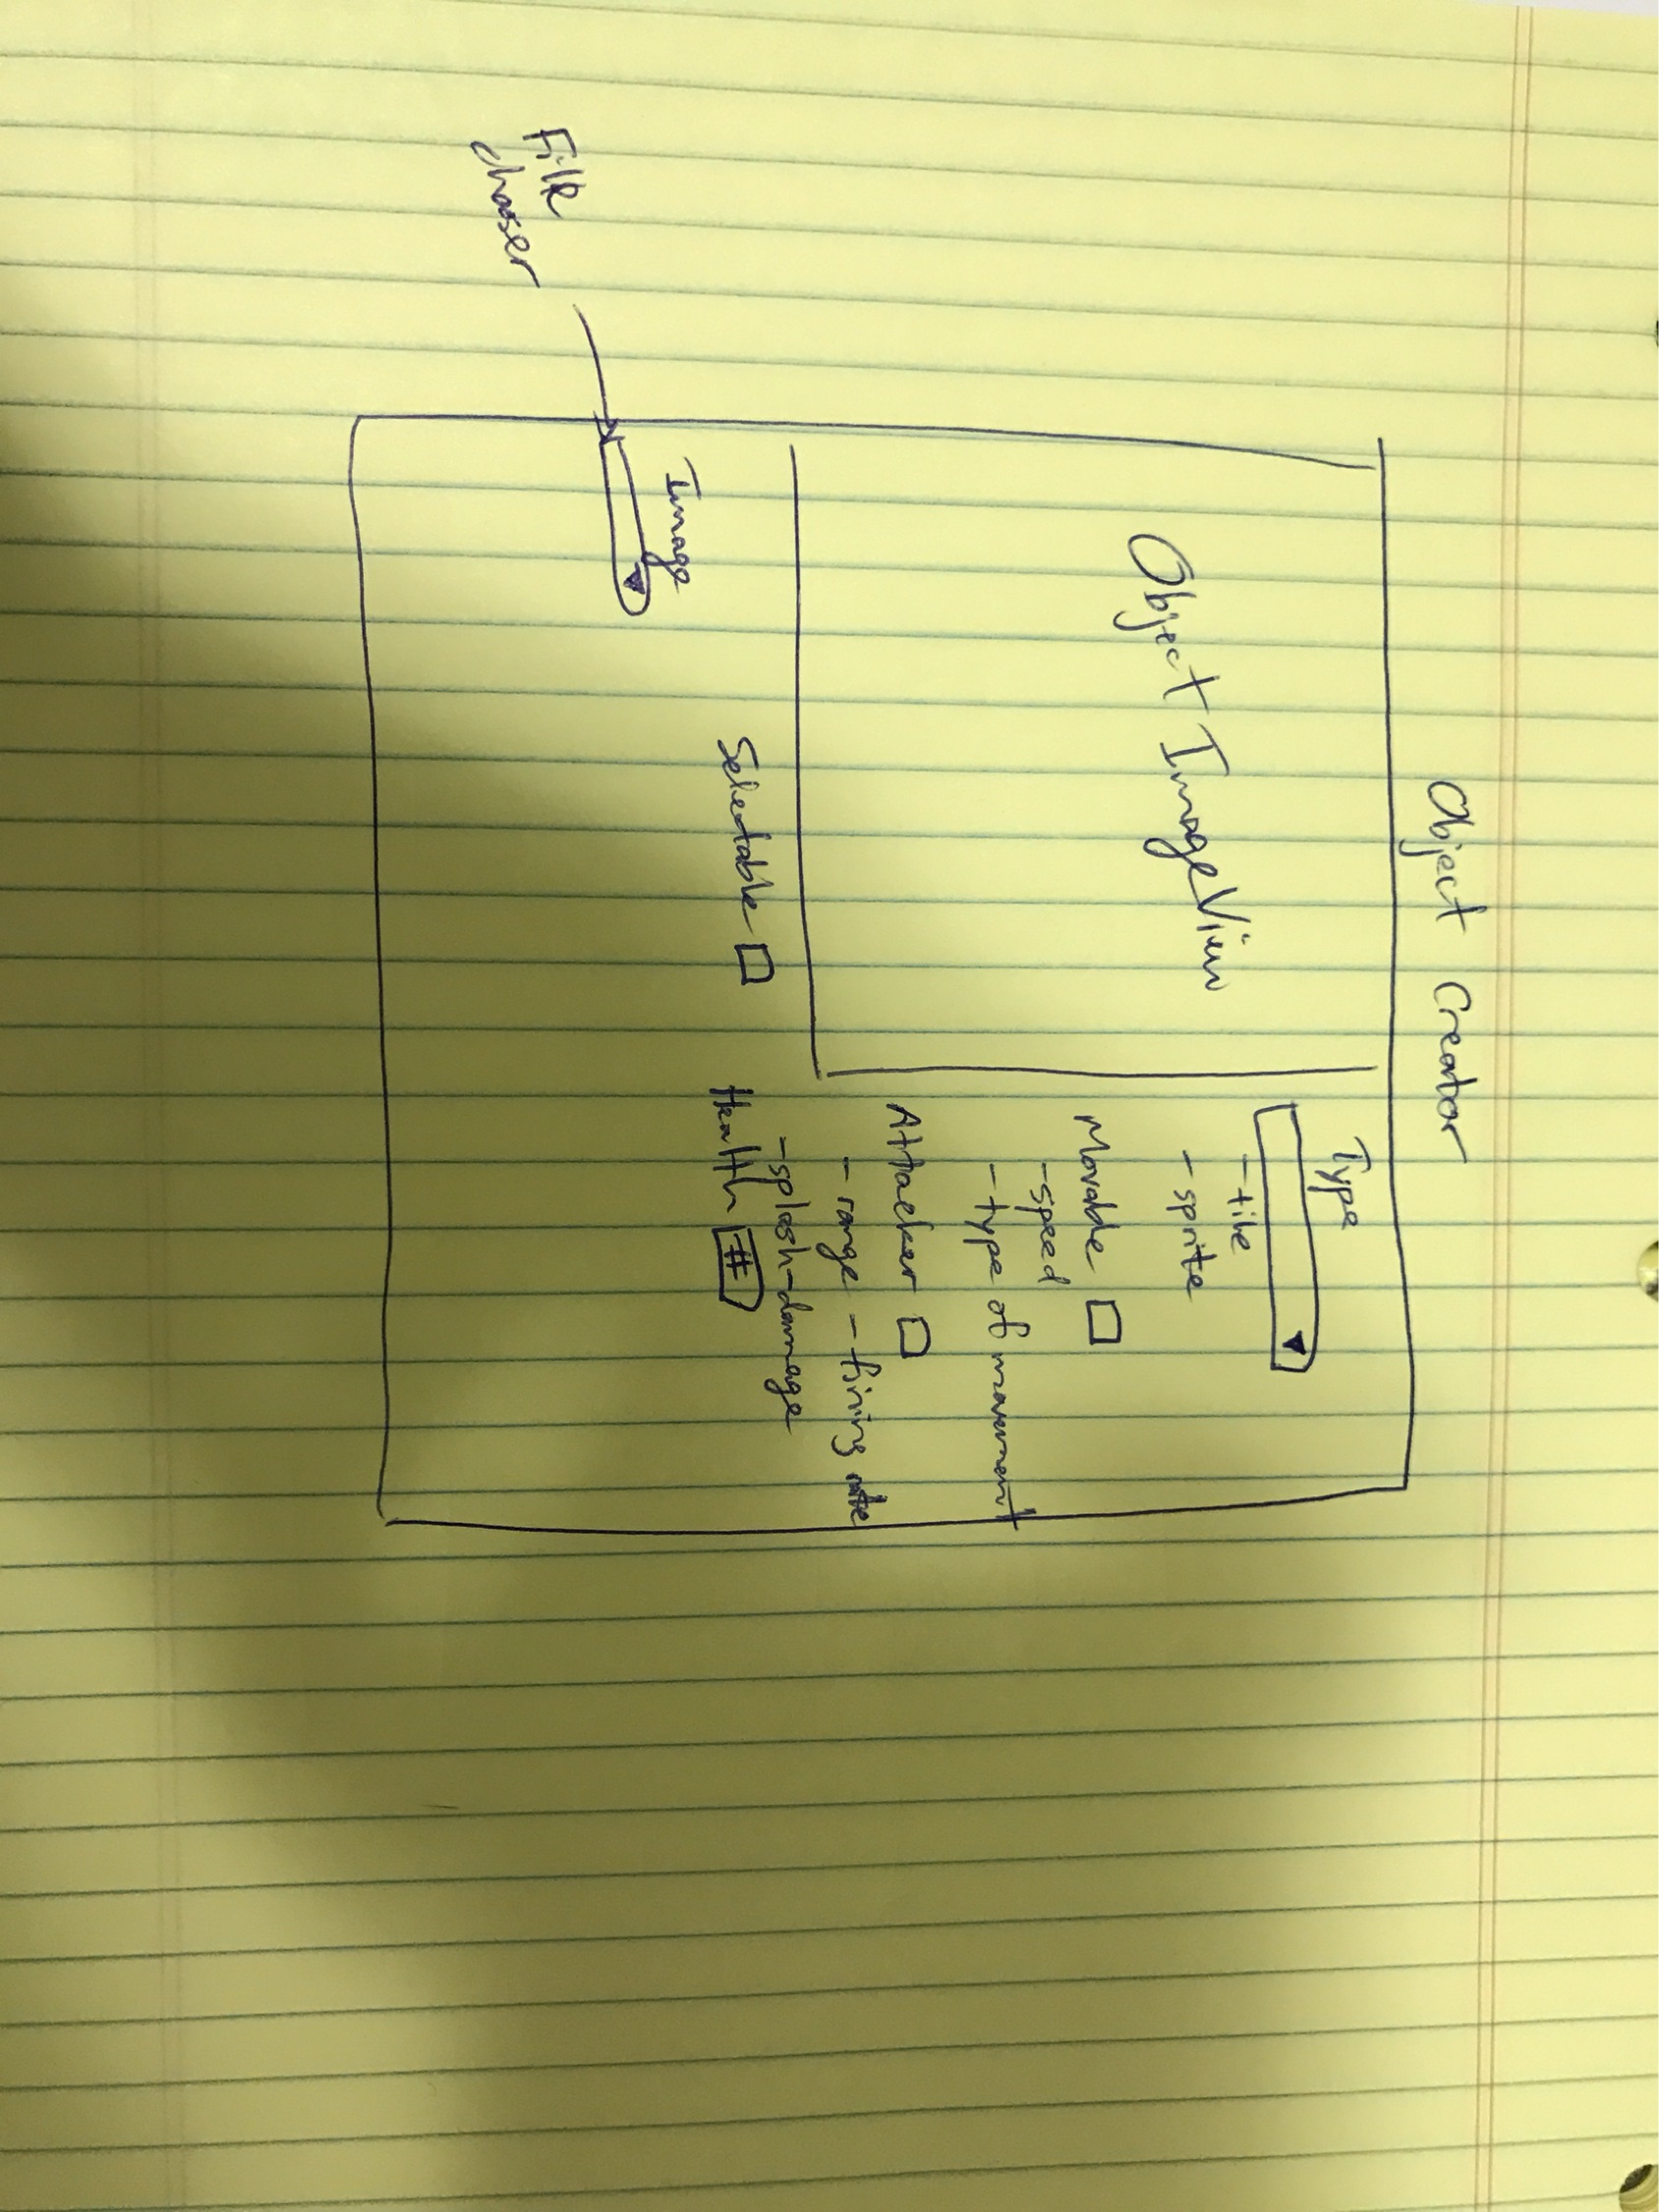 Object Creator
Object ImageView
Type
- tile
- sprite
Movable
- speed
- type of movement
Attacker
- range - firing rate
- splash-damage
Health #
Selectable
Image
File
chooser